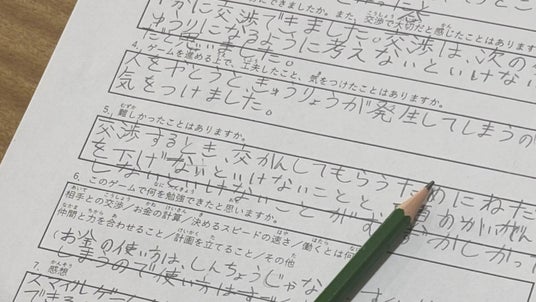 かに交渉できました。交渉は、次の
できましたか。また、交渉で大切だと感じたことはありますか。
ゆうりになるように考えないといけない
だと思いました。
4. ゲームを進める上で、工夫したこと、気をつけたことはありますか。
人をやとうときゅうりょうが発生してしまうの
気をつけました。
5. 難しかったことはありますか。
交渉するとき、交かんしてもらうためにねだ
を下げないといけないことと、
しないといけないことがむずかしかっ
6. このゲームで何を勉強できたと思いますか。
相手との交渉／お金の計算／決めるスピードの速さ／働くとは何
仲間と力を合わせること／計画を立てること／その他
(お金の使い方は、しんちょうじゃな
しまうので使い方は
7. 感想
スマイルゲーム